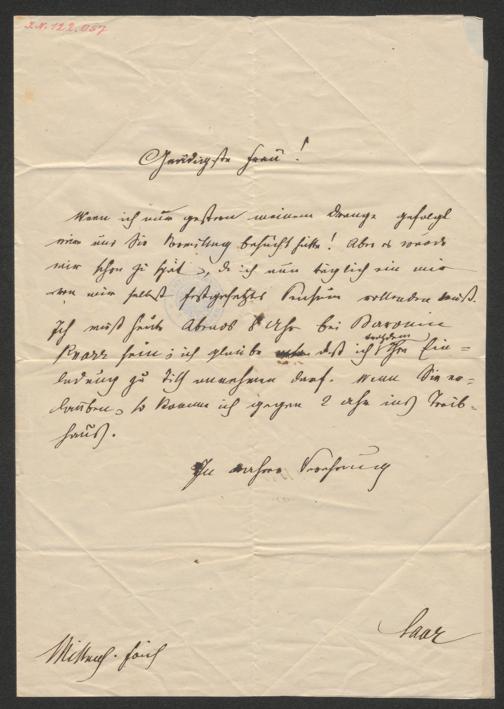 I.N. 122.057
Gnädigste Frau!
Wenn ich nur gestern meinem Drange gefolgt
wäre und Sie Vormittag besucht hätte! Aber es wurde
mir schon zu spät, da ich nun täglich ein mir
von mir selbst festgesetztes Pensum vollenden muß.
Ich muß heute Abends 8 Uhr bei Baronin
sein; ich glaube daß ich trotzdem Ihre Ein-
ladung zu Tisch annehmen darf. Wenn Sie er-
lauben, so komme ich gegen 2 Uhr ins Treib-
haus.
In wahrer Verehrung
Saar
Mittwoch. früh